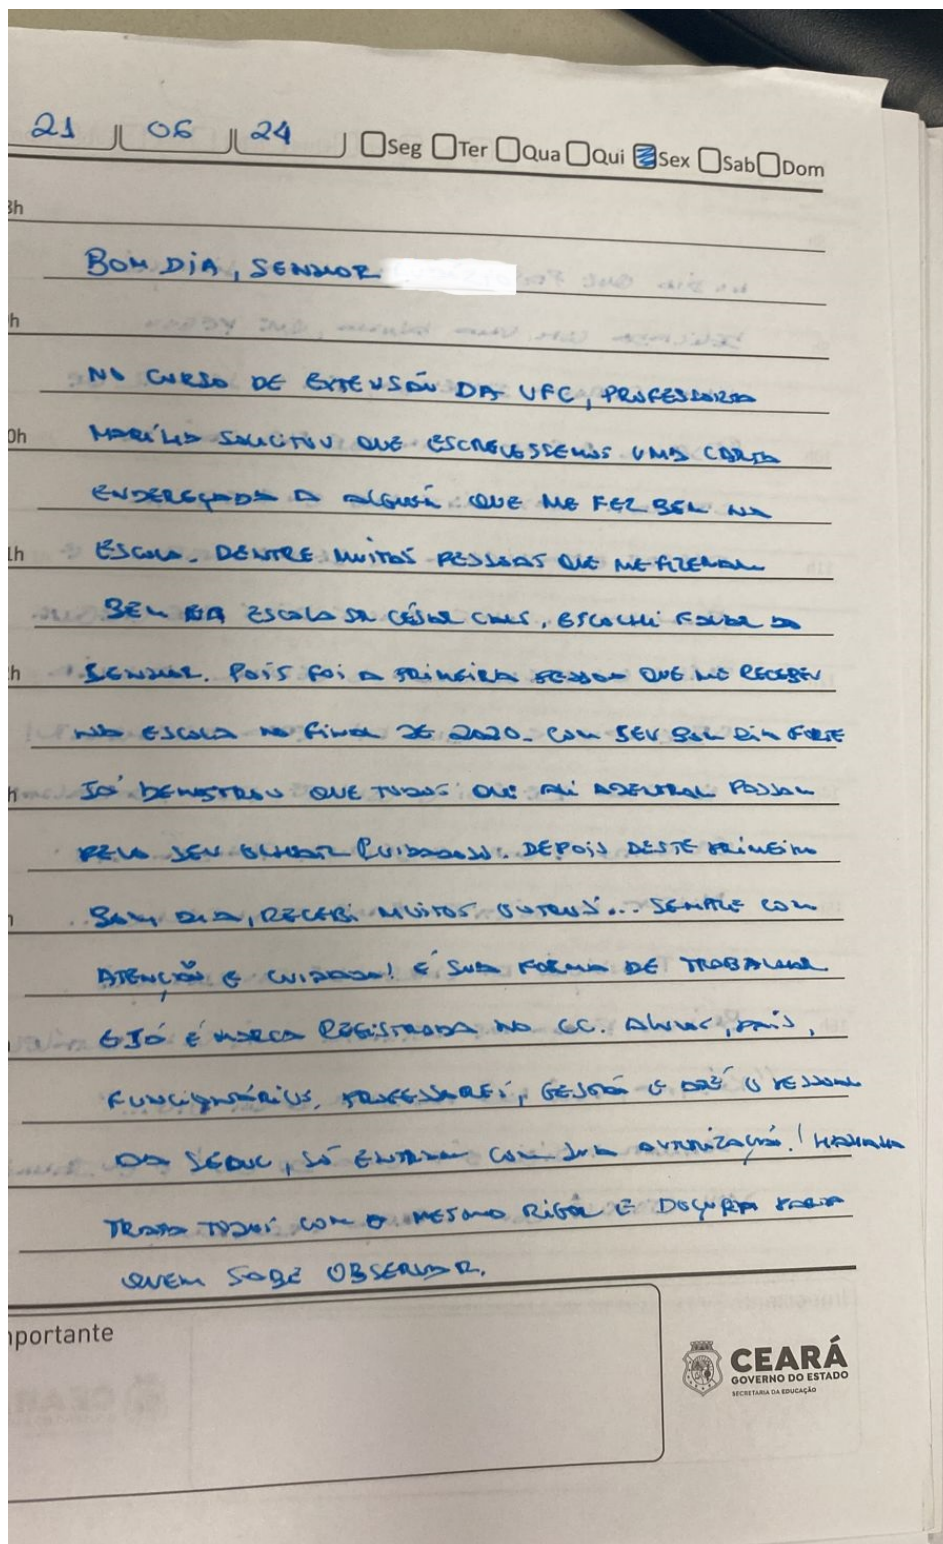 21 06 24 Seg Ter Qua Qui Sex Sab Dom
8h
BOM DIA, SENHOR
h
NO CURSO DE EXTENSÃO DA UFC, PROFESSORA
0h
MARÍLIA SOLICITOU QUE ESCREVESSEMOS UMA CARTA
ENDEREÇADA A ALGUÉM QUE ME FEZ BEM NA
1h
ESCOLA. DENTRE MUITAS PESSOAS QUE ME FIZERAM
BEM NA ESCOLA DA CÉSAR CALS, ESCOLHI FALAR DO
h
SENHOR. POIS FOI A PRIMEIRA PESSOA QUE ME RECEBEU
NA ESCOLA NO FINAL DE 2020. COM SEU BOM DIA FORTE
h
JÁ DEMOSTROU QUE TODOS QUE ALI ADENTRAM PASSAM
PELO SEU OLHAR CUIDADOSO. DEPOIS DESTE PRIMEIRO
BOM DIA, RECEBI MUITOS OUTROS... SEMPRE COM
ATENÇÃO E CUIDADO! É SUA FORMA DE TRABALHAR
E JÁ É MARCA REGISTRADA NO CC. ALUNOS, PAIS,
FUNCIONÁRIOS, PROFESSORES, GESTÃO E ATÉ O PESSOAL
DA SEDUC, SÓ ENTRAM COM SUA AUTORIZAÇÃO!
TRATA TODOS COM O MESMO RIGOR E DOÇURA PARA
QUEM SABE OBSERVAR.
mportante
CEARÁ
GOVERNO DO ESTADO
SECRETARIA DA EDUCAÇÃO